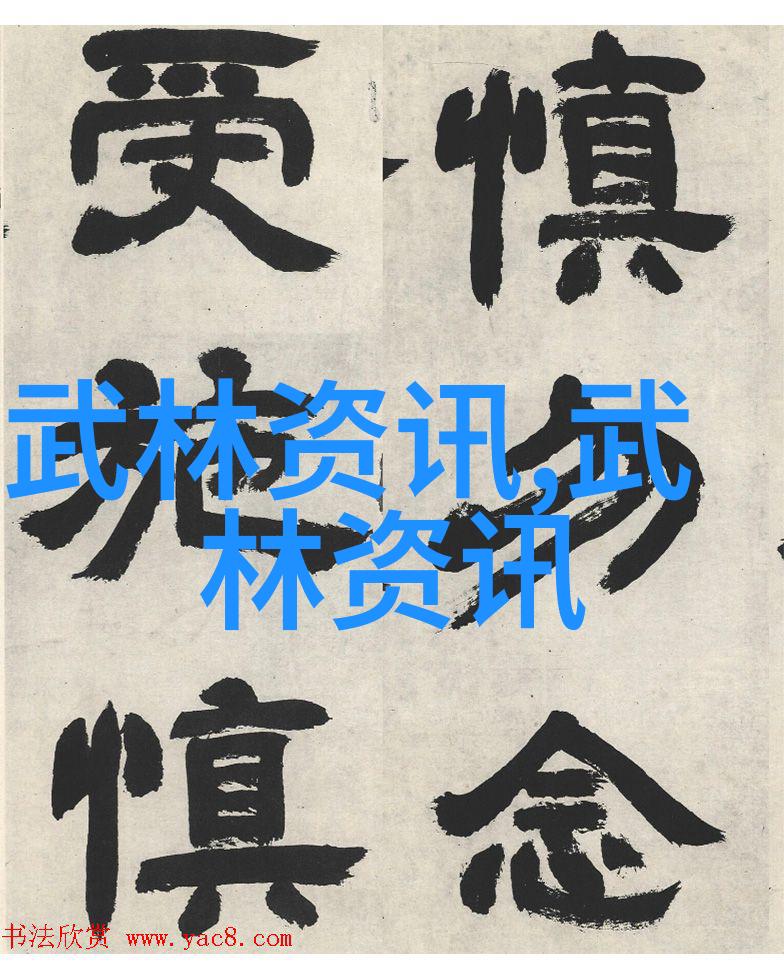 慎勿念
受施慎
武林资讯,武
林资讯
书法欣赏 www.yac8.com